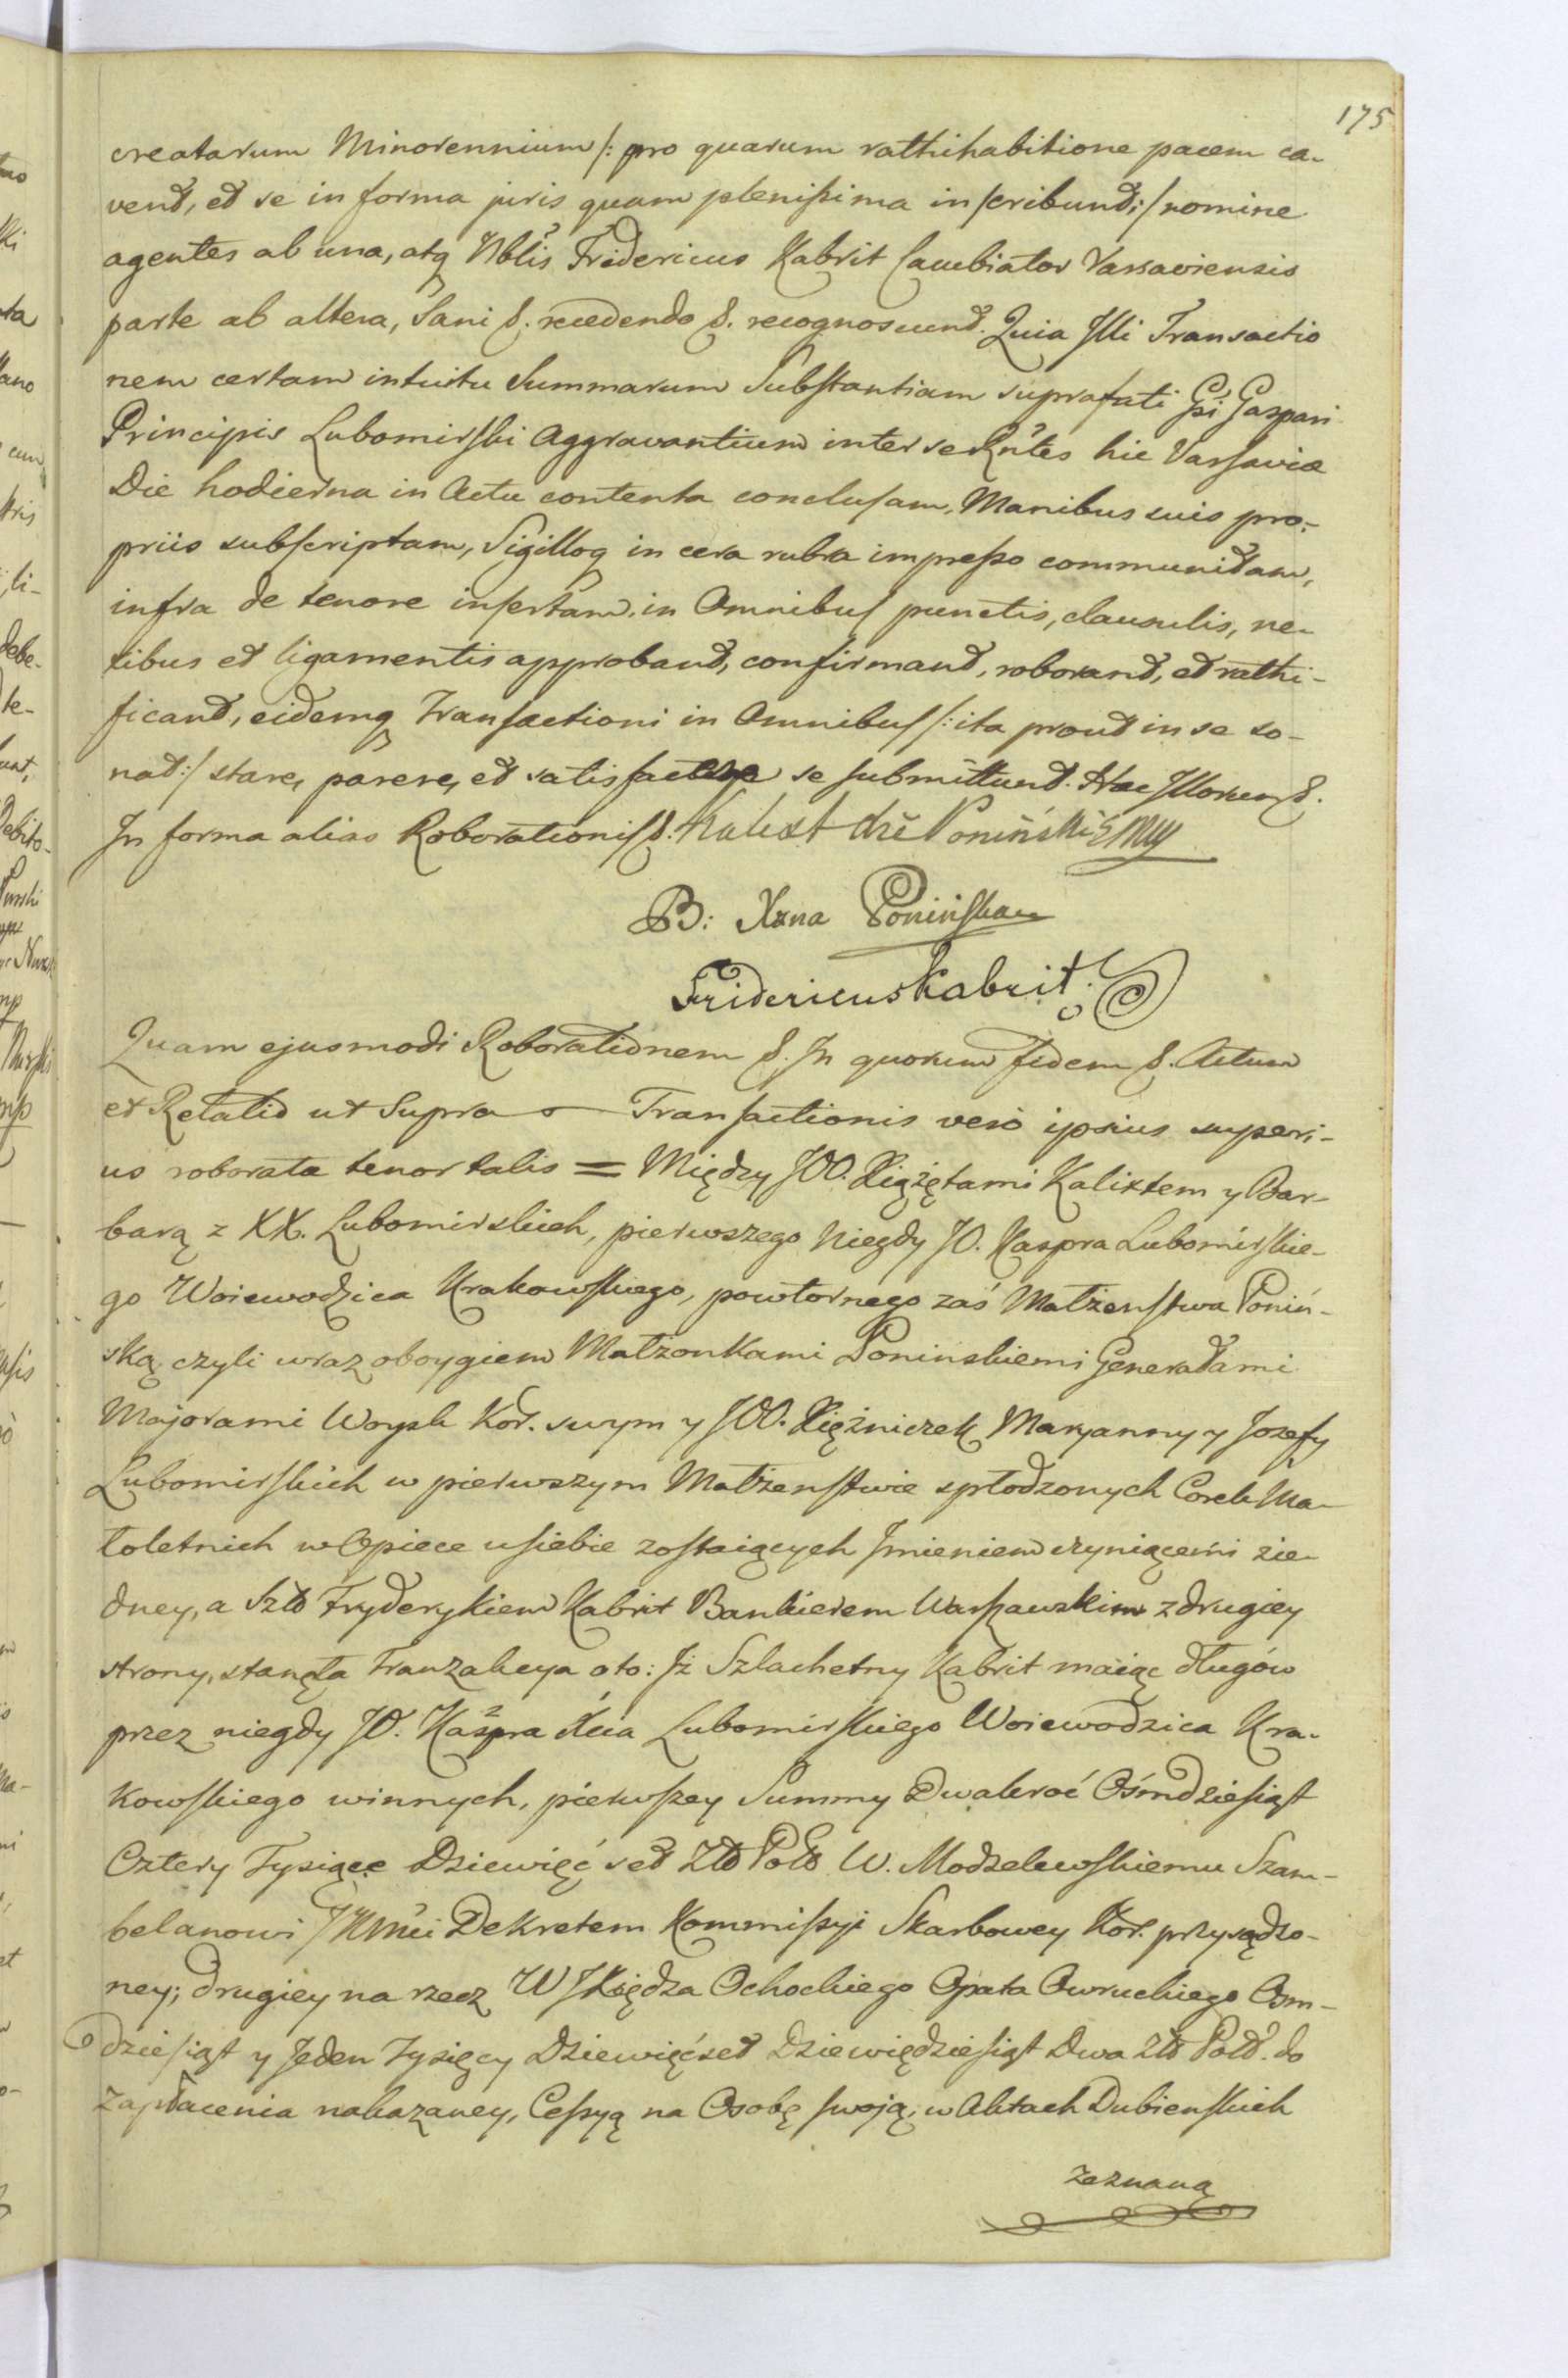 175
creatarum Minorennium /: pro quarum rathihabitione pacem ca-
vend, et se in forma juris quam plenissima inscribund :/ nomine
agentes ab una, atq Nblis Fridericus Kabrit Cambiator Varsaviensis
parte ab altera, Sani &. recedendo &. recognoscund. Quia Illi Transactio
nem certam intuitu Summarum Substantiam suprafati Gsi Gaspari
Principis Lubomirski Aggravantium inter se Rntes hic Varsaviae
Die hodierna in Actu contenta conclusam, Manibus suis pro-
priis subscriptam, Sigilloq in cera rubra impresso communitam,
infra de tenore insertam, in Omnibus punctis, clausulis, ne-
xibus et ligamentis approband, confirmand, roborand, et rathi-
ficand, eidemq Transactioni in Omnibus /: ita prout in se so-
nat :/ stare, parere, et satisfacere se submittund. Hac Illorum &.
In forma alias Roborationis &. Kalixt Poniński
B: Xzna Ponińska
Fridericus Kabrit
Quam ejusmodi Roborationem &. In quorum fidem &. Actum
et Relatio ut Supra — Transactionis vero ipsius superi-
us roborata tenor talis = Między JOO. Xiążętami Kalixtem y Bar-
barą z XX. Lubomirskich, pierwszego niegdy JO. Kaspra Lubomirskie-
go Woiewodzica Krakowskiego, powtornego zaś Małżenstwa Poniń-
ską czyli wraz oboygiem Małżonkami Poninskiemi Generałami
Majorami Woysk Kor. swym y JOO. Xiężniczek Maryanny y Jozefy
Lubomirskich w pierwszym Małżenstwie spłodzonych Corek Ma-
łoletnich w Opiece u siebie zostaiących Jmieniem czyniącemi z ie-
dney, a Szło Fryderykiem Kabrit Bankierem Warszawskim z drugiey
strony, stanęła Tranzakcya oto: Jż Szlachetny Kabrit maiąc długów
przez niegdy JO. Kaspra Xcia Lubomirskiego Woiewodzica Kra-
kowskiego winnych, pierwszey Summy Dwakroć Ośmdziesiąt
Cztery Tysiące Dziewięć set Złł Poll W. Modzelewskiemu Szam-
belanowi JKMci Dekretem Kommissyi Skarbowey Kor. przysądzo-
ney; drugiey na rzecz WJXiędza Ochockiego Opata Owruckiego Osm-
dziesiąt y Jeden Tysięcy Dziewięćset Dziewiędziesiąt Dwa Złł Poll. do
zapłacenia nakazaney, Cessyą na Osobę swoją, w Aktach Dubienskich
zeznaną